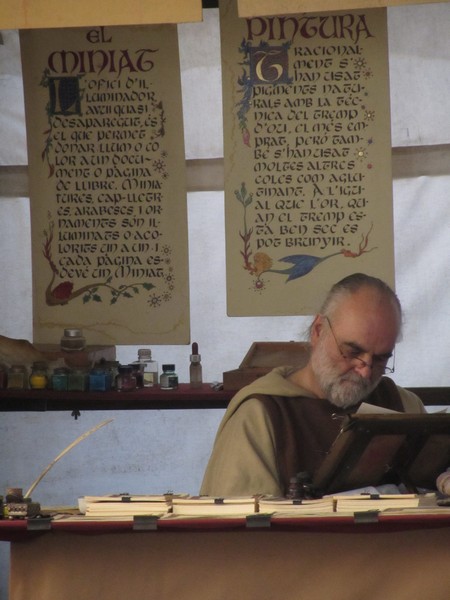 EL
MINIAT
L'OFICI D'IL·
LUMINADOR,
AVUI QUASI
DESAPAREGUT, ÉS
EL QUE PERMET
DONAR LLUM O CO
LOR A UN DOCU-
MENT O PÀGINA
DE LLIBRE. MINIA
TURES, CAP-LLETR
ES, ARABESCS, I OR
NAMENTS SÓN IL·
LUMINATS O ACO
LORITS UN A UN. I
CADA PÀGINA ES
DEVÉ UN MINIAT
PINTURA
TRACIONAL
MENT S'
HAN USAT
PIGMENTS NATU
RALS AMB LA TÈC
NICA DEL TREMP
D'OU, EL MÉS EM
PRAT, PERÒ TAM
BÉ S'HAN USAT
MOLTES ALTRES
COLES COM AGLU
TINANT. A L'IGU
AL QUE L'OR, QU
AN EL TREMP ES
TÀ BEN SEC ES
POT BRUNYIR.